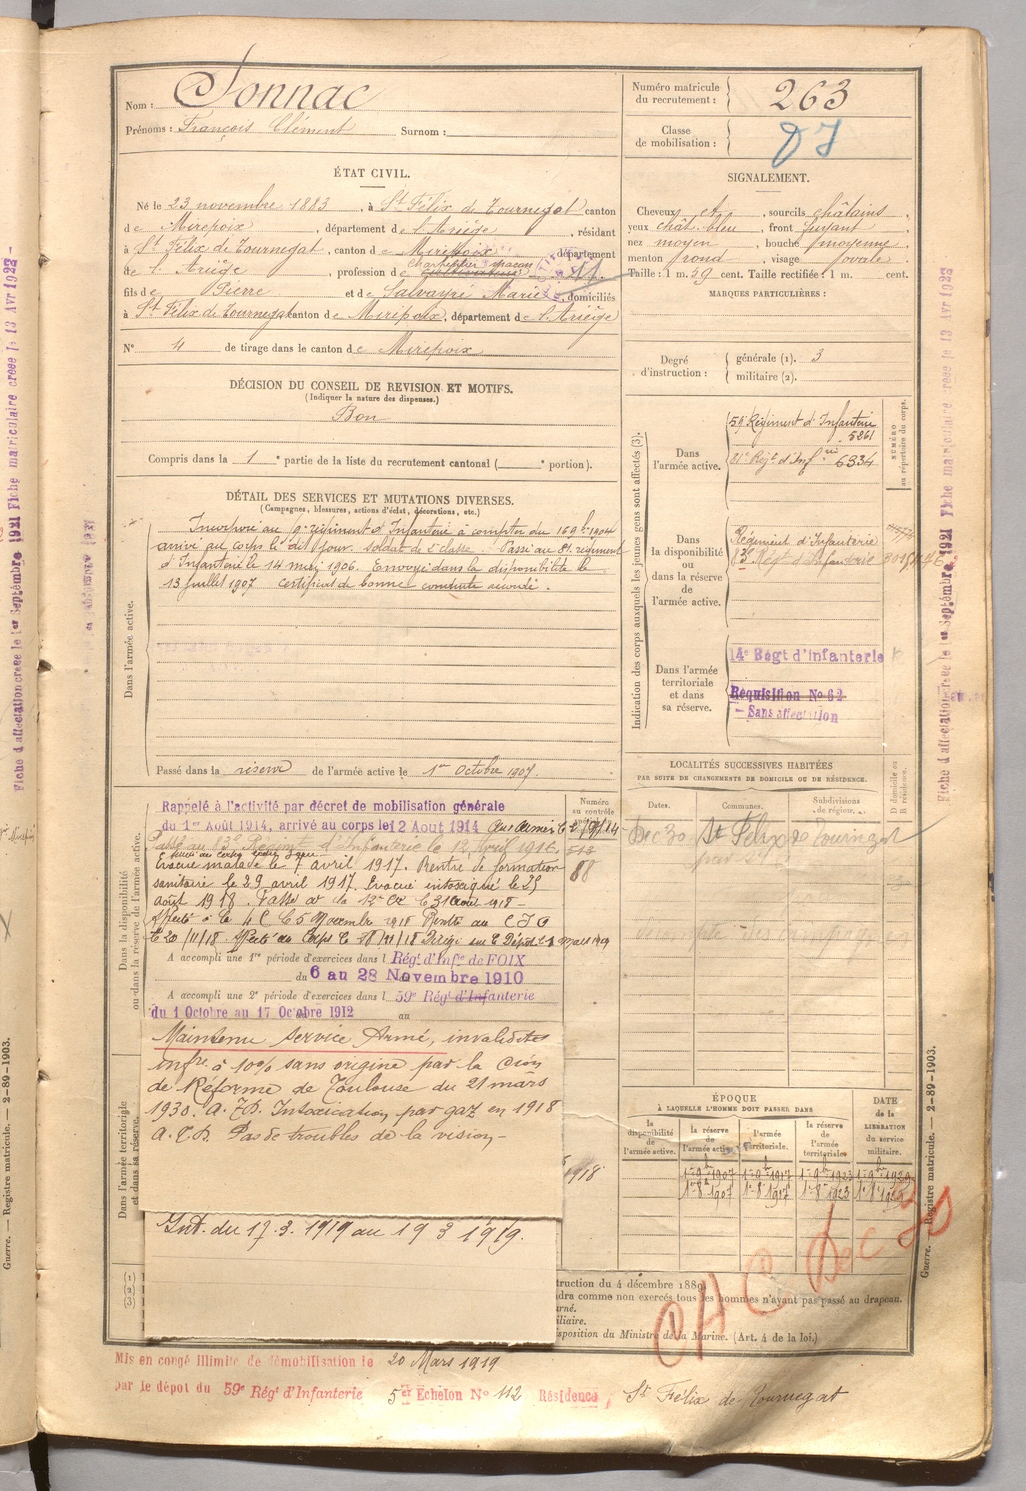 Nom : Sonnac
Prénoms : François Clément Surnom :
ÉTAT CIVIL.
Né le 23 novembre 1883, à St Félix de Tournegat canton
de Mirepoix, département de l'Ariège, résidant
à St Félix de Tournegat, canton de Mirepoix département
de l'Ariège, profession de cultivateur
fils de Pierre et de Salvayré Marie, domiciliés
à St Félix de Tournegat canton de Mirepoix, département de l'Ariège
N° 4 de tirage dans le canton de Mirepoix
DÉCISION DU CONSEIL DE REVISION ET MOTIFS.
(Indiquer la nature des dispenses.)
Bon
Compris dans la 1e partie de la liste du recrutement cantonal ( e portion).
DÉTAIL DES SERVICES ET MUTATIONS DIVERSES.
(Campagnes, blessures, actions d'éclat, décorations, etc.)
Dans l'armée active.
Incorporé au 9e régiment d'Infanterie à compter du 16 9bre 1904
arrivé au corps le dit jour soldat de 2e classe. Passé au 81e régiment
d'Infanterie le 14 mai 1906. Envoyé dans la disponibilité le
13 juillet 1907 certificat de bonne conduite accordé.
Passé dans la réserve de l'armée active le 1er Octobre 1907.
Dans la disponibilité
ou dans la réserve de l'armée active.
Rappelé à l'activité par décret de mobilisation générale
du 1er Août 1914, arrivé au corps le 12 Aout 1914 aux armées
Passé au 83e Régimt d'Infanterie le 12 Avril 1916
Evacué malade le 7 avril 1917. Rentre de formation
sanitaire le 29 avril 1917. Evacué intoxiqué le 25
août 1918. Passé à la 13e Cie le 31 août 1918
Affecté à la 4 C le 5 Novembre 1918 Rentré au C I D
le 20/11/18 Affecté au Corps le 28/11/18 Dirigé sur le Dépôt
A accompli une 1re période d'exercices dans l Régt d'Infie de FOIX
du 6 au 28 Novembre 1910
A accompli une 2e période d'exercices dans l 59e Régt d'Infanterie
du 1 Octobre au 17 Octobre 1912
Maintenu service Armé, invalidité
infre à 10% sans origine par la Cion
de Réforme de Toulouse du 21 mars
1930. A.D. Intoxication par gaz en 1918
A.C.D. Pas de troubles de la vision
Dans l'armée territoriale
et dans sa réserve.
Int. du 17.3.1919 au 19 3 1919.
(1)
(2)
(3)
Mis en congé illimité de démobilisation le 20 Mars 1919
par le dépôt du 59e Régt d'Infanterie 5er Echelon N° 112 Résidence, St Félix de Tournegat
Numéro matricule
du recrutement : 263
Classe
de mobilisation :
SIGNALEMENT.
Cheveux et, sourcils châtains,
yeux chât. bleu, front fuyant,
nez moyen, bouche moyenne,
menton rond, visage ovale.
Taille : 1 m. 59 cent. Taille rectifiée : 1 m. cent.
MARQUES PARTICULIÈRES :
Degré
d'instruction :
générale (1). 3
militaire (2).
Indication des corps auxquels les jeunes gens sont affectés (3).
NUMÉRO
au répertoire du corps.
Dans
l'armée active.
59e Régiment d'Infanterie
5261
81e Régt d'Infie 6334
Dans
la disponibilité
ou
dans la réserve
de
l'armée active.
Régiment d'Infanterie
83e Régt d'Infanterie
Dans l'armée
territoriale
et dans
sa réserve.
14e Régt d'infanterie
Réquisition N° 62
— Sans affectation
LOCALITÉS SUCCESSIVES HABITÉES
PAR SUITE DE CHANGEMENTS DE DOMICILE OU DE RÉSIDENCE.
Dates. Communes. Subdivisions
de région.
D domicile ou
R résidence.
Dec 30 St Félix de Tournegat
Numéro
au contrôle
88
1918
ÉPOQUE
À LAQUELLE L'HOMME DOIT PASSER DANS
DATE
de la
LIBÉRATION
du service
militaire.
la
disponibilité
de l'armée active.
la réserve
de
l'armée active.
l'armée
territoriale.
la réserve
de
l'armée
territoriale.
CHC Dec 30
truction du 4 décembre 1889.
dra comme non exercés tous les hommes n'ayant pas passé au drapeau.
urné.
iliaire.
sposition du Ministre de la Marine. (Art. 4 de la loi.)
Guerre. — Registre matricule. — 2-89-1903.
Guerre. — Registre matricule. — 2-89-1903.
Fiche d'affectation créée le 1er Septembre 1921 Fiche matriculaire créée le 13 Avr 1922
Fiche d'affectation créée le 1er Septembre 1921 Fiche matriculaire créée le 13 Avr 1922